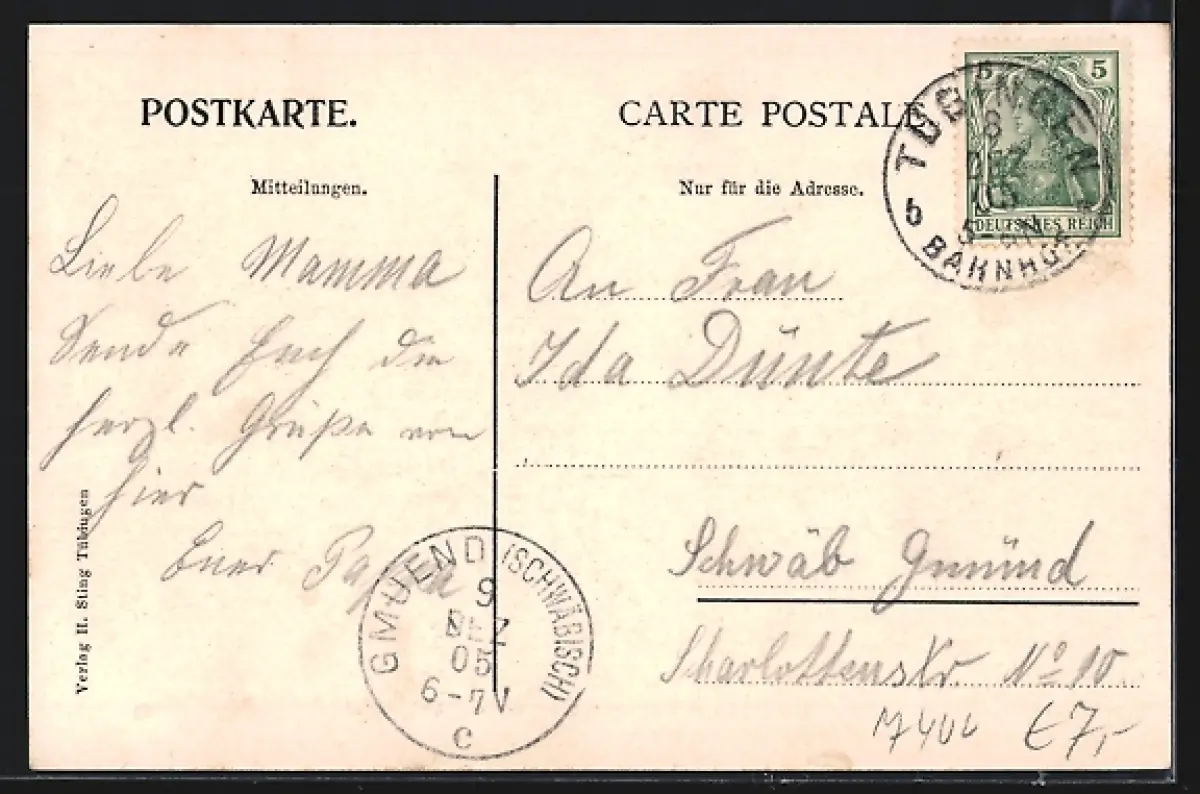 POSTKARTE.
Mitteilungen.
Liebe Mamma
Sende Euch die
herzl. Grüße von
hier
Euer Papa
Verlag H. Sting Tübingen
CARTE POSTALE
Nur für die Adresse.
An Frau
Ida Dünte
Schwäb Gmünd
Charlottenstr. No 10.
€7,-
5
DEUTSCHES REICH
TÜBINGEN
8
DEZ
05
BAHNHOF
b
GMUEND (SCHWÄBISCH)
9
DEZ
05
6-7V
c